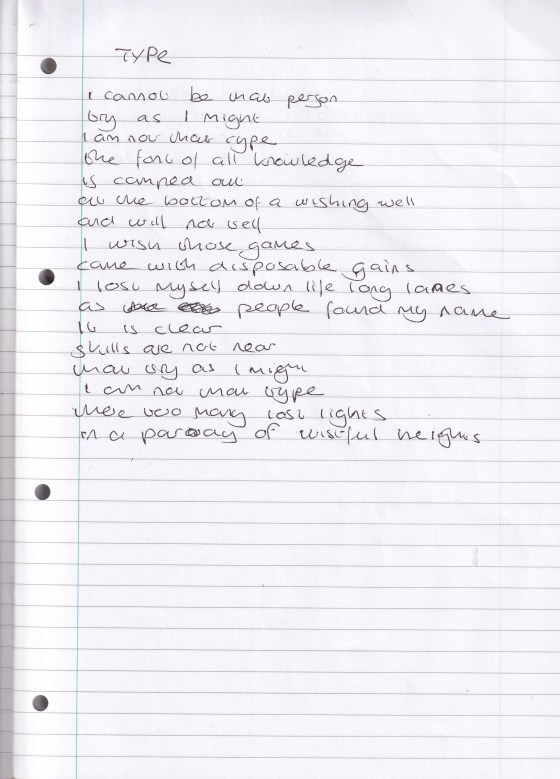 TYPE
I cannot be that person
try as I might
I am not that type
the font of all knowledge
is camped out
at the bottom of a wishing well
and will not sell
I wish those games
came with disposable gains
I lost myself down life long lanes
as people found my name
It is clear
skills are not near
that try as I might
I am not that type
these too many lost lights
in a parody of wistful heights